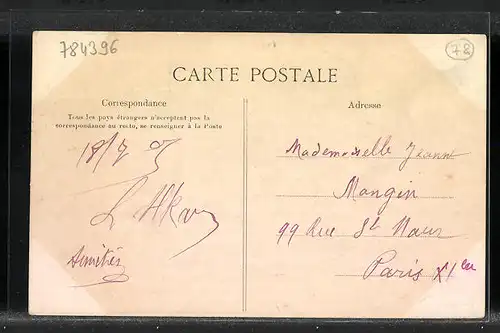 784396
78
CARTE POSTALE
Correspondance
Tous les pays étrangers n'acceptent pas la
correspondance au recto, se renseigner à la Poste
Adresse
18/9
Amitiés
Mademoiselle Jeanne
Mangin
99 Rue St Maur
Paris XIe